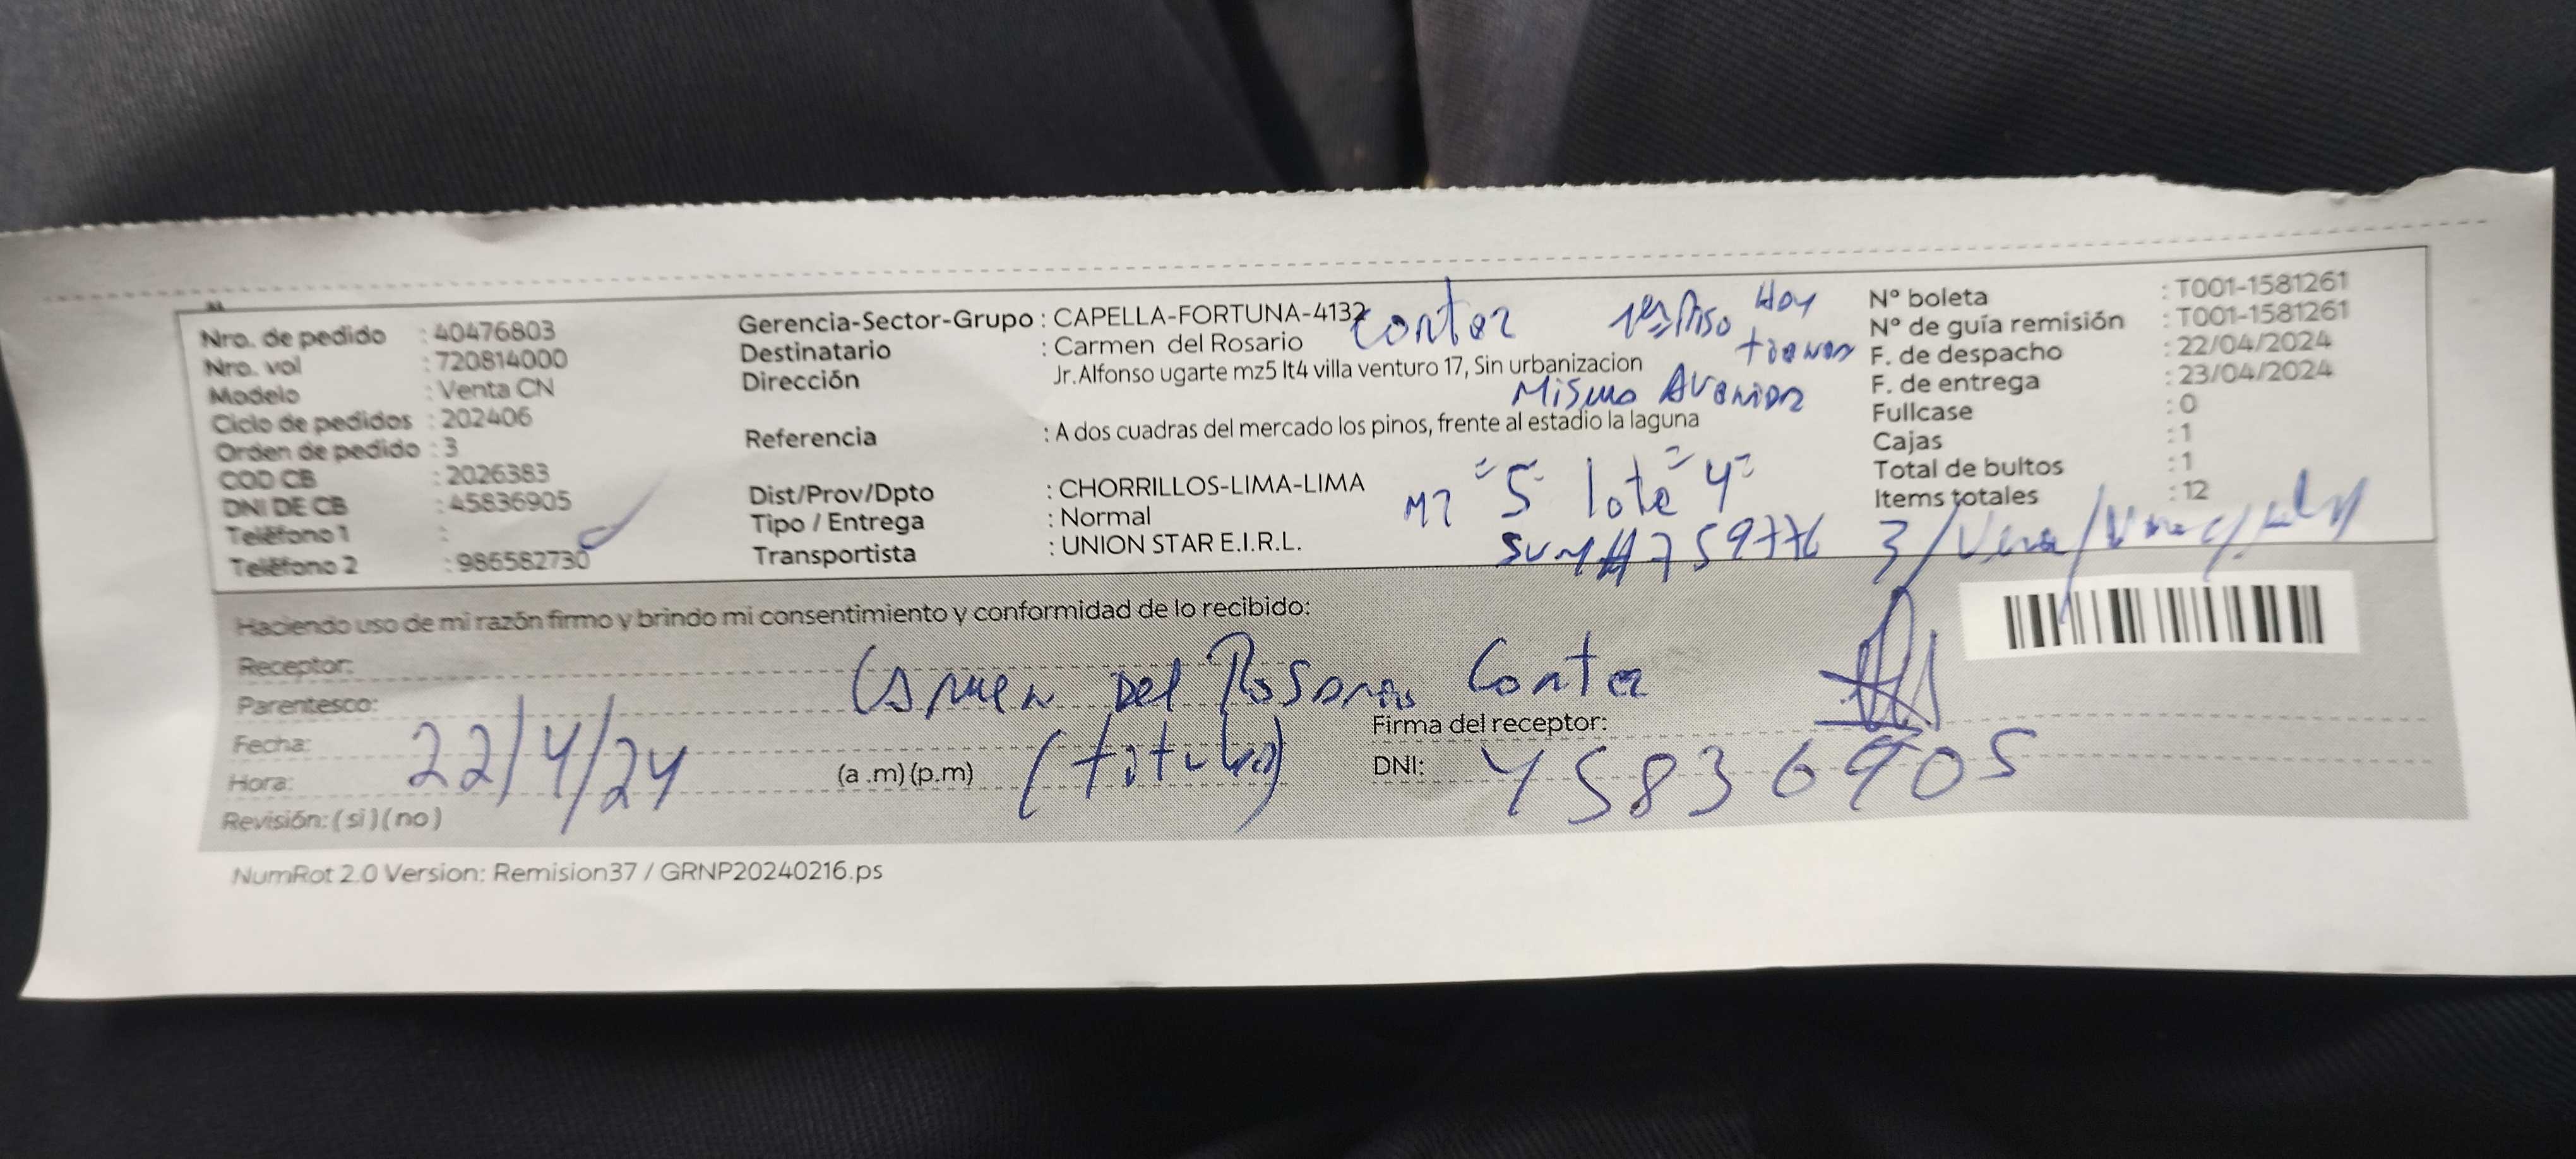 Nro. de pedido : 40476803
Nro. vol : 720814000
Modelo : Venta CN
Ciclo de pedidos : 202406
Orden de pedido : 3
COD CB : 2026383
DNI DE CB : 45836905
Teléfono 1 :
Teléfono 2 : 986582730
Gerencia-Sector-Grupo : CAPELLA-FORTUNA-4132
Destinatario : Carmen del Rosario
Dirección Jr.Alfonso ugarte mz5 lt4 villa venturo 17, Sin urbanizacion
Referencia : A dos cuadras del mercado los pinos, frente al estadio la laguna
Dist/Prov/Dpto : CHORRILLOS-LIMA-LIMA
Tipo / Entrega : Normal
Transportista : UNION STAR E.I.R.L.
Piso Hoy
Mismo
"5" lote "4"
N° boleta : T001-1581261
N° de guía remisión : T001-1581261
F. de despacho : 22/04/2024
F. de entrega : 23/04/2024
Fullcase : 0
Cajas : 1
Total de bultos : 1
Items totales : 12
Haciendo uso de mi razón firmo y brindo mi consentimiento y conformidad de lo recibido:
Receptor: Carmen Del Rosario
Parentesco:
Firma del receptor:
Fecha: 22/4/24
Hora: (a .m) (p.m)
(titular)
DNI: 45836905
Revisión: ( si ) ( no )
NumRot 2.0 Version: Remision37 / GRNP20240216.ps